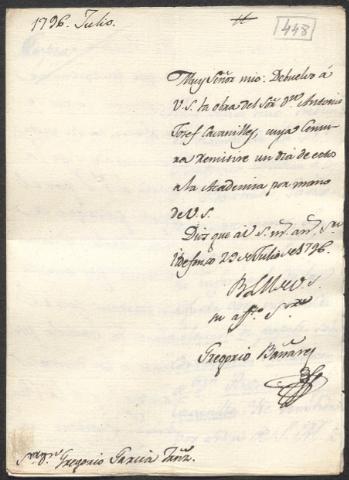 1796. Julio.
448
Muy Señor mio: Debuelvo á
V.S. la obra del Sor. Dn. Antonio
Josef Cavanilles, cuya Censu-
ra remitiré un dia de estos
a la Academia por mano
de V.S.
Dios gue. á V.S. ms. as. Sn.
Ildefonso 29 de Julio de 1796.
B L M de V.S.
su affo.
Gregorio Bañares
Gregorio Garcia